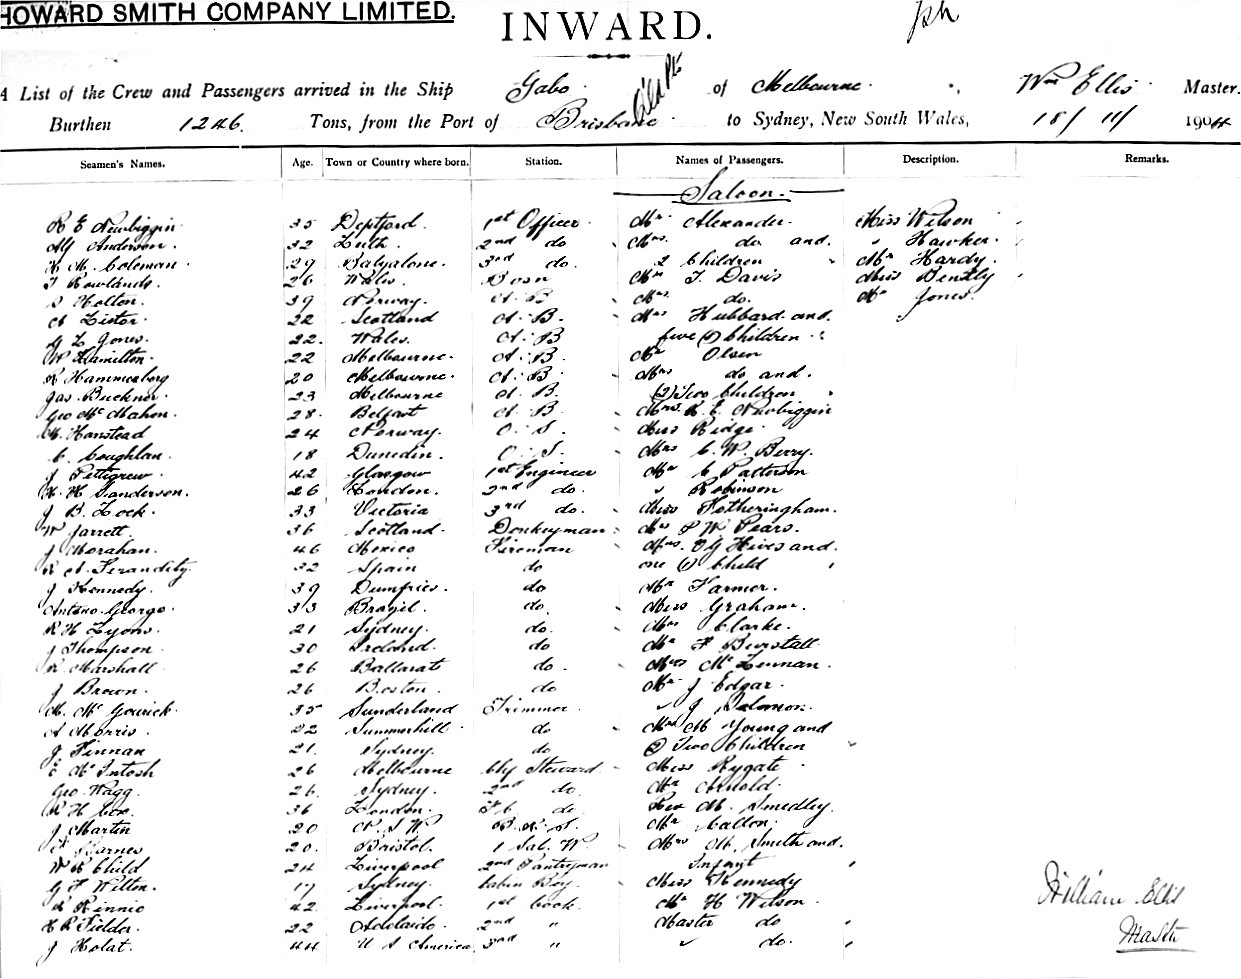 HOWARD SMITH COMPANY LIMITED.
INWARD.
A List of the Crew and Passengers arrived in the Ship Gabo of Melbourne, Wm Ellis Master.
Burthen 1246. Tons, from the Port of Brisbane to Sydney, New South Wales, 18/11/1904
Seamen's Names. Age. Town or Country where born. Station. Names of Passengers. Description. Remarks.
Saloon.
R E Newbiggin 35 Deptford 1st Officer Mr Alexander Miss Wilson
Alf Anderson 32 Leith 2nd do Mrs. do and Hawker
H M Coleman 29 3rd do. 2 Children Mr Hardy
T Rowlands 26 Wales Bosn Mr T. Davis Miss Bently
S Holton 39 Norway. A.B Mrs. do. Mr Jones
A Lister 22 Scotland A.B. Mrs Hubbard and
G L Jones 22. Wales. A.B five (5) Children
W Hamilton 22 Melbourne. A.B. Mr Olsen
R Hammerberg 20 Melbourne. A.B Mrs do and.
Jas Buckner 23 Melbourne A.B. (2) Two Children
Geo McMahon. 28. Belfast A.B. Mrs. R. E. Newbiggin
Hanstead 24 Norway. O.S. Miss Ridge
C. Coughlan. 18 Dunedin. O.S. Mrs C. W. Berry.
J Pettigrew 42 Glasgow 1st Engineer Mr C Patterson
H H Sanderson. 26 London. 2nd do. " Robinson
J B. Lock. 33 Victoria 3rd do. Miss Fotheringham.
W Jarrett 36 Scotland. Donkeyman W Pears.
J Morahan. 46 Mexico Fireman Mrs. Hives and
32 Spain do one (1) Child
J Kennedy. 39 Dumfries. do Mr Farmer.
Antono George 33 Brazil. do. Miss Graham.
R H Lyons 21 Sydney. do. Mrs Clarke.
J Thompson 30 Ireland. do Mr F Burstall
R Marshall 26 Ballarat do. Mrs McLennan.
J Brown. 26 Boston. do Mr J Edgar.
M. 35 Sunderland Trimmer " J Solomon.
A Morris. 22 Summerhill do Mrs M Young and
J Finnan 21. Sydney. do (2) Two Children
E McIntosh 26 Melbourne Chf Steward Miss Rygate
Geo Wagg. 26. Sydney. 2nd do. Mr Arnold.
R H Cox. 36 London. F.C. do Rev M. Smedley.
J Martin 20 N.S.W. B.R.S. Mr Callon.
Barnes 20. Bristol. 1 Sal. W Mrs M. Smith and.
W R Child 24 Liverpool 2nd Pantryman Infant
G F Wilton. 17 Sydney. Cabin Boy. Miss Kennedy
R Rennie 42 Liverpool. 1st Cook. Mr H Wilson.
H R Fielder. 22 Adelaide. 2nd " Master do
J Holat. 44 U S America. 3rd " " do.
William Ellis
Master